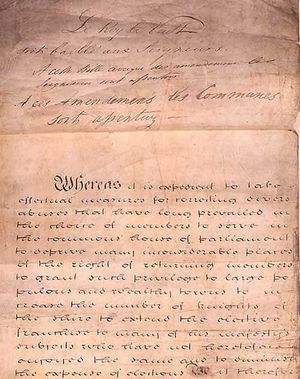 Le Roy le Veult
Soit baillé aux Seigneurs
A ceste Bille avecque des amendemens les
Seigneurs sont assentus
A ces Amendemens les Communes
sont assentus
Whereas it is expedient to take
effectual measures for correcting divers
abuses that have long prevailed in
the choice of members to serve in
the commons house of parliament
to deprive many inconsiderable places
of the right of returning members
to grant such privilege to large po
pulous and wealthy towns to in
crease the number of knights of
the shire to extend the elective
franchise to many of his majesty's
subjects who have not heretofore
enjoyed the same and to diminish
the expense of elections Be it therefore